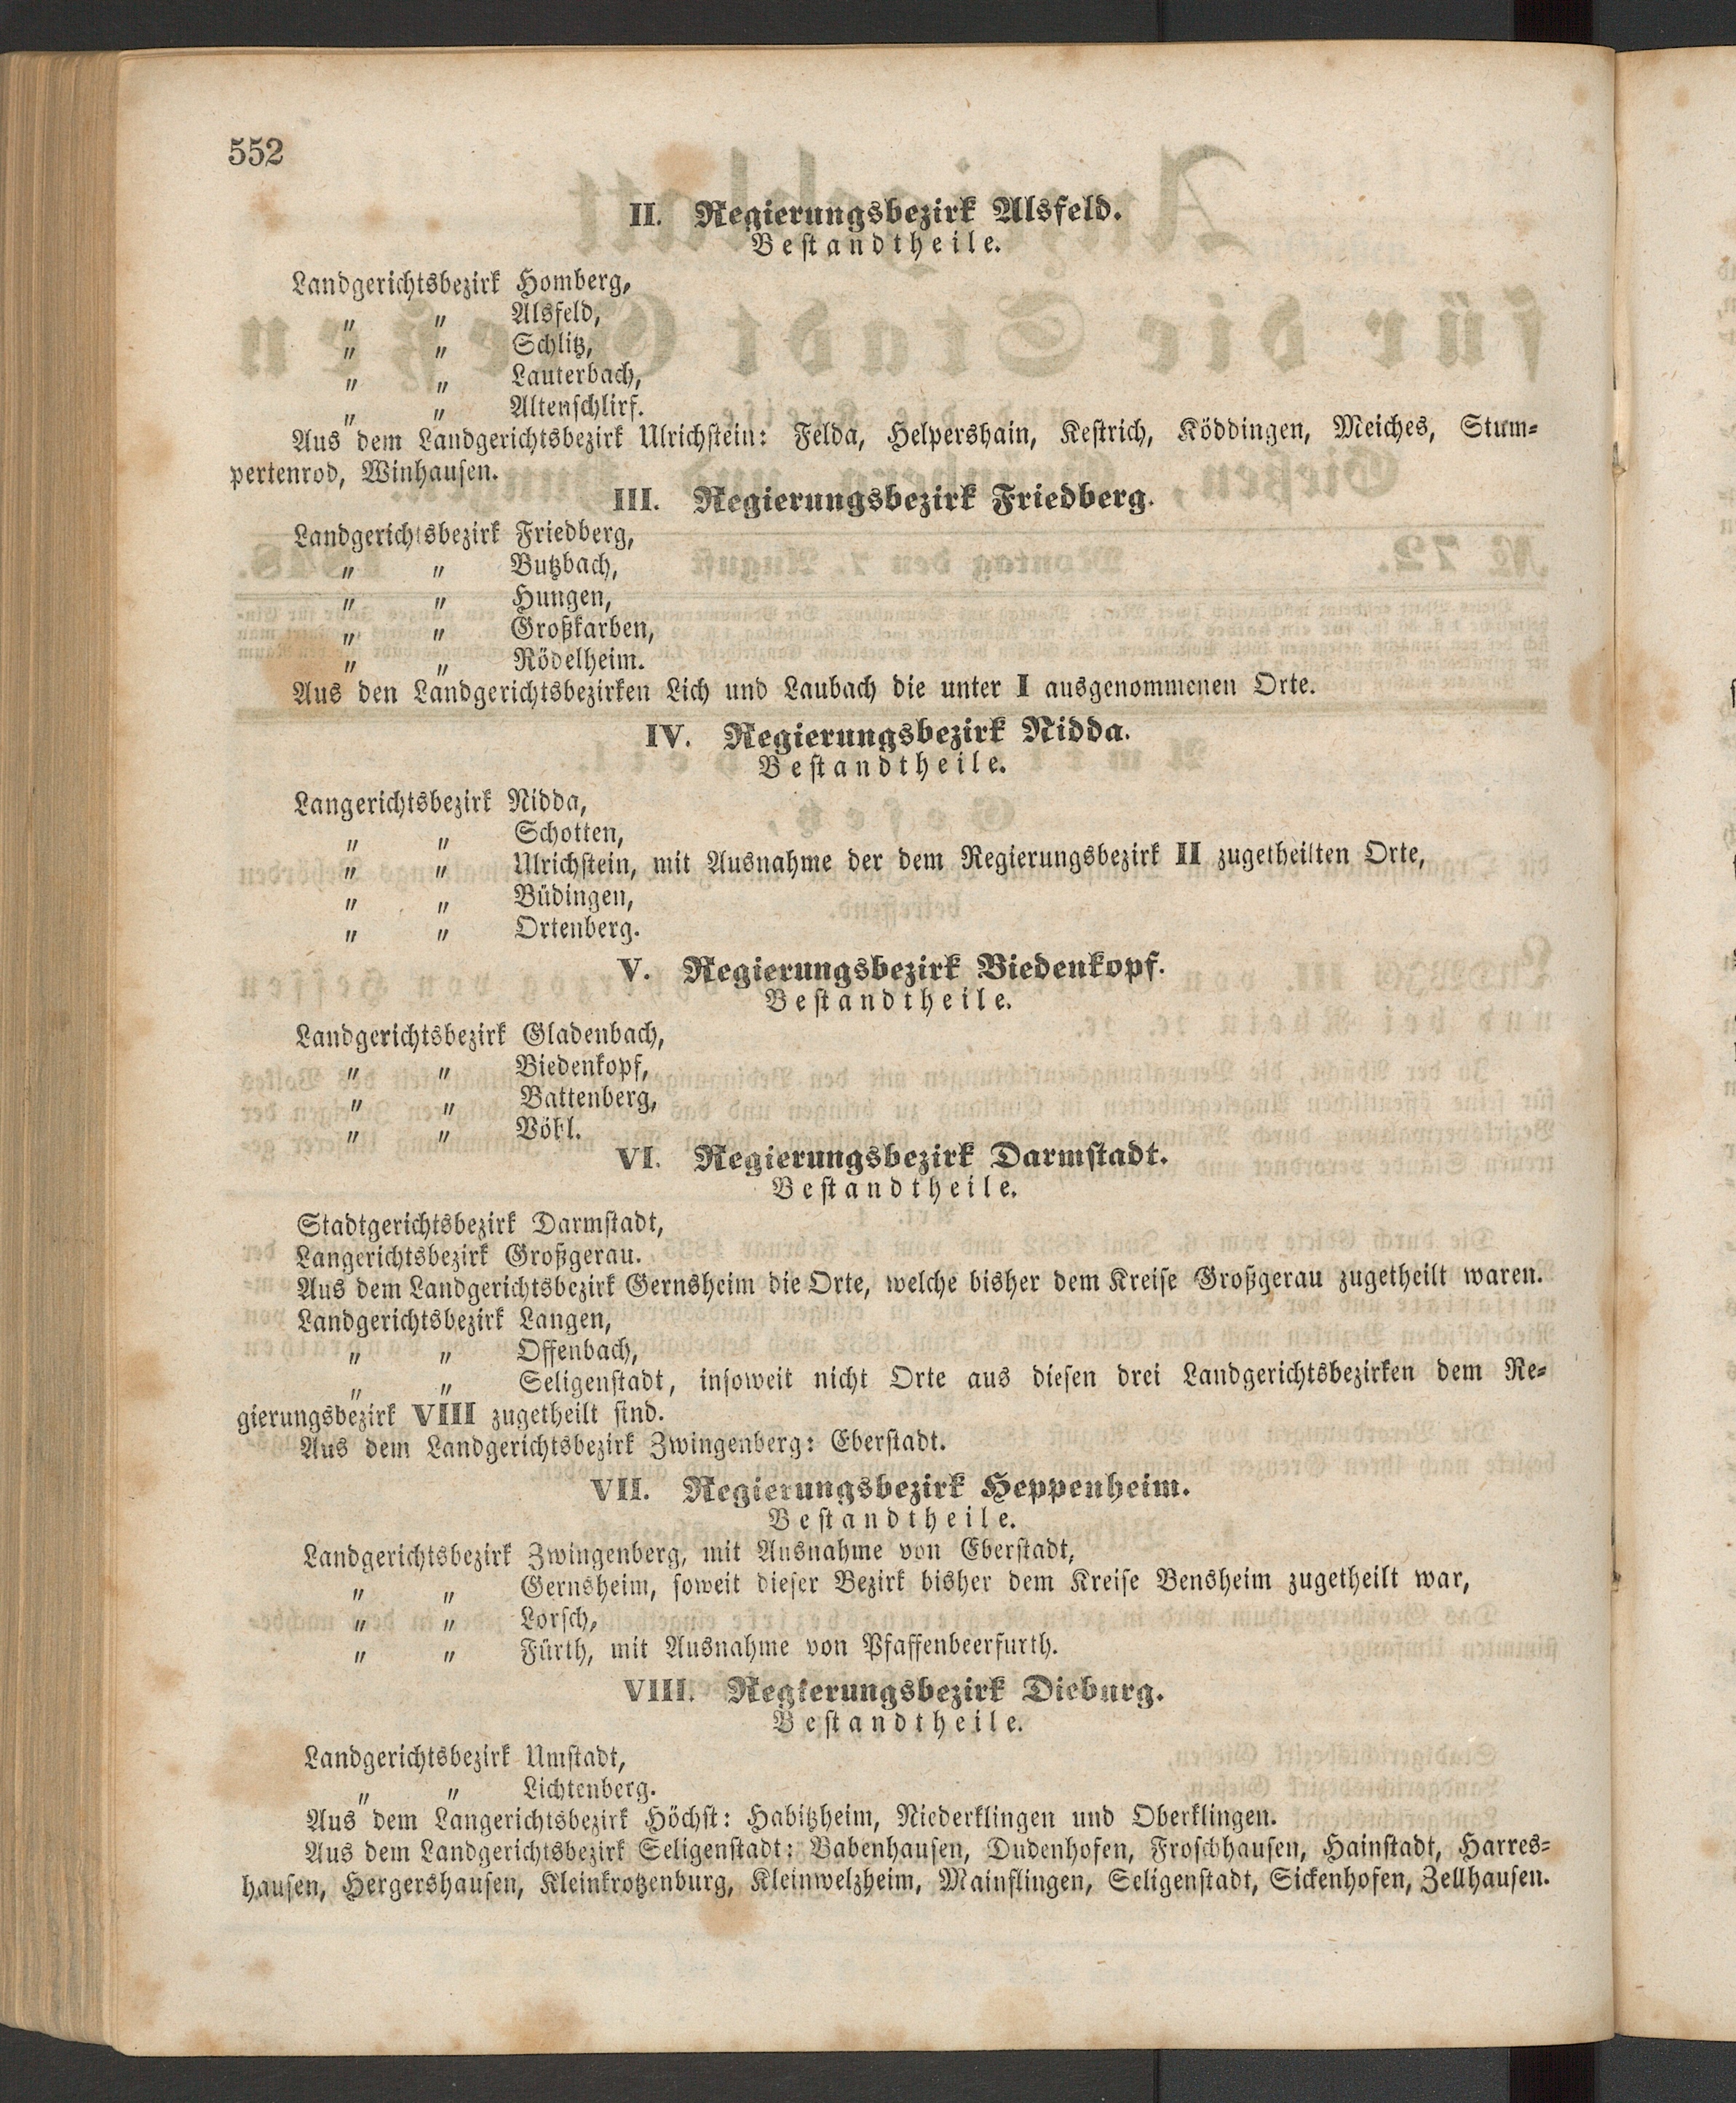 552
II. Regierungsbezirk Alsfeld.
Bestandtheile.
Landgerichtsbezirk Homberg,
„ „ Alsfeld,
„ „ Schlitz,
„ „ Lauterbach,
„ „ Altenschlirf.
Aus dem Landgerichtsbezirk Ulrichstein: Felda, Helpershain, Kestrich, Köddingen, Meiches, Stum-
pertenrod, Winhausen.
III. Regierungsbezirk Friedberg.
Landgerichtsbezirk Friedberg,
„ „ Butzbach,
„ „ Hungen,
„ „ Großkarben,
„ „ Rödelheim.
Aus den Landgerichtsbezirken Lich und Laubach die unter I ausgenommenen Orte.
IV. Regierungsbezirk Nidda.
Bestandtheile.
Langerichtsbezirk Nidda,
„ „ Schotten,
„ „ Ulrichstein, mit Ausnahme der dem Regierungsbezirk II zugetheilten Orte,
„ „ Büdingen,
„ „ Ortenberg.
V. Regierungsbezirk Biedenkopf.
Bestandtheile.
Landgerichtsbezirk Gladenbach,
„ „ Biedenkopf,
„ „ Battenberg,
„ „ Vöhl.
VI. Regierungsbezirk Darmstadt.
Bestandtheile.
Stadtgerichtsbezirk Darmstadt,
Langerichtsbezirk Großgerau.
Aus dem Landgerichtsbezirk Gernsheim die Orte, welche bisher dem Kreise Großgerau zugetheilt waren.
Landgerichtsbezirk Langen,
„ „ Offenbach,
„ „ Seligenstadt, insoweit nicht Orte aus diesen drei Landgerichtsbezirken dem Re-
gierungsbezirk VIII zugetheilt sind.
Aus dem Landgerichtsbezirk Zwingenberg: Eberstadt.
VII. Regierungsbezirk Heppenheim.
Bestandtheile.
Landgerichtsbezirk Zwingenberg, mit Ausnahme von Eberstadt,
„ „ Gernsheim, soweit dieser Bezirk bisher dem Kreise Bensheim zugetheilt war,
„ „ Lorsch,
„ „ Fürth, mit Ausnahme von Pfaffenbeerfurth.
VIII. Regierungsbezirk Dieburg.
Bestandtheile.
Landgerichtsbezirk Umstadt,
„ „ Lichtenberg.
Aus dem Langerichtsbezirk Höchst: Habitzheim, Niederklingen und Oberklingen.
Aus dem Landgerichtsbezirk Seligenstadt: Babenhausen, Dudenhofen, Froschhausen, Hainstadt, Harres-
hausen, Hergershausen, Kleinkrotzenburg, Kleinwelzheim, Mainflingen, Seligenstadt, Sickenhofen, Zellhausen.